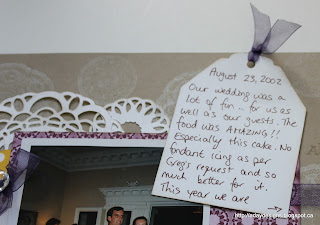 August 23, 2002
Our wedding was a
lot of fun .. for us as
well as our guests. The
food was AMAZING!!
Especially this cake. No
fondant icing as per
Greg's request and so
much better for it.
This year we are
→
http://adaydesigns.blogspot.ca